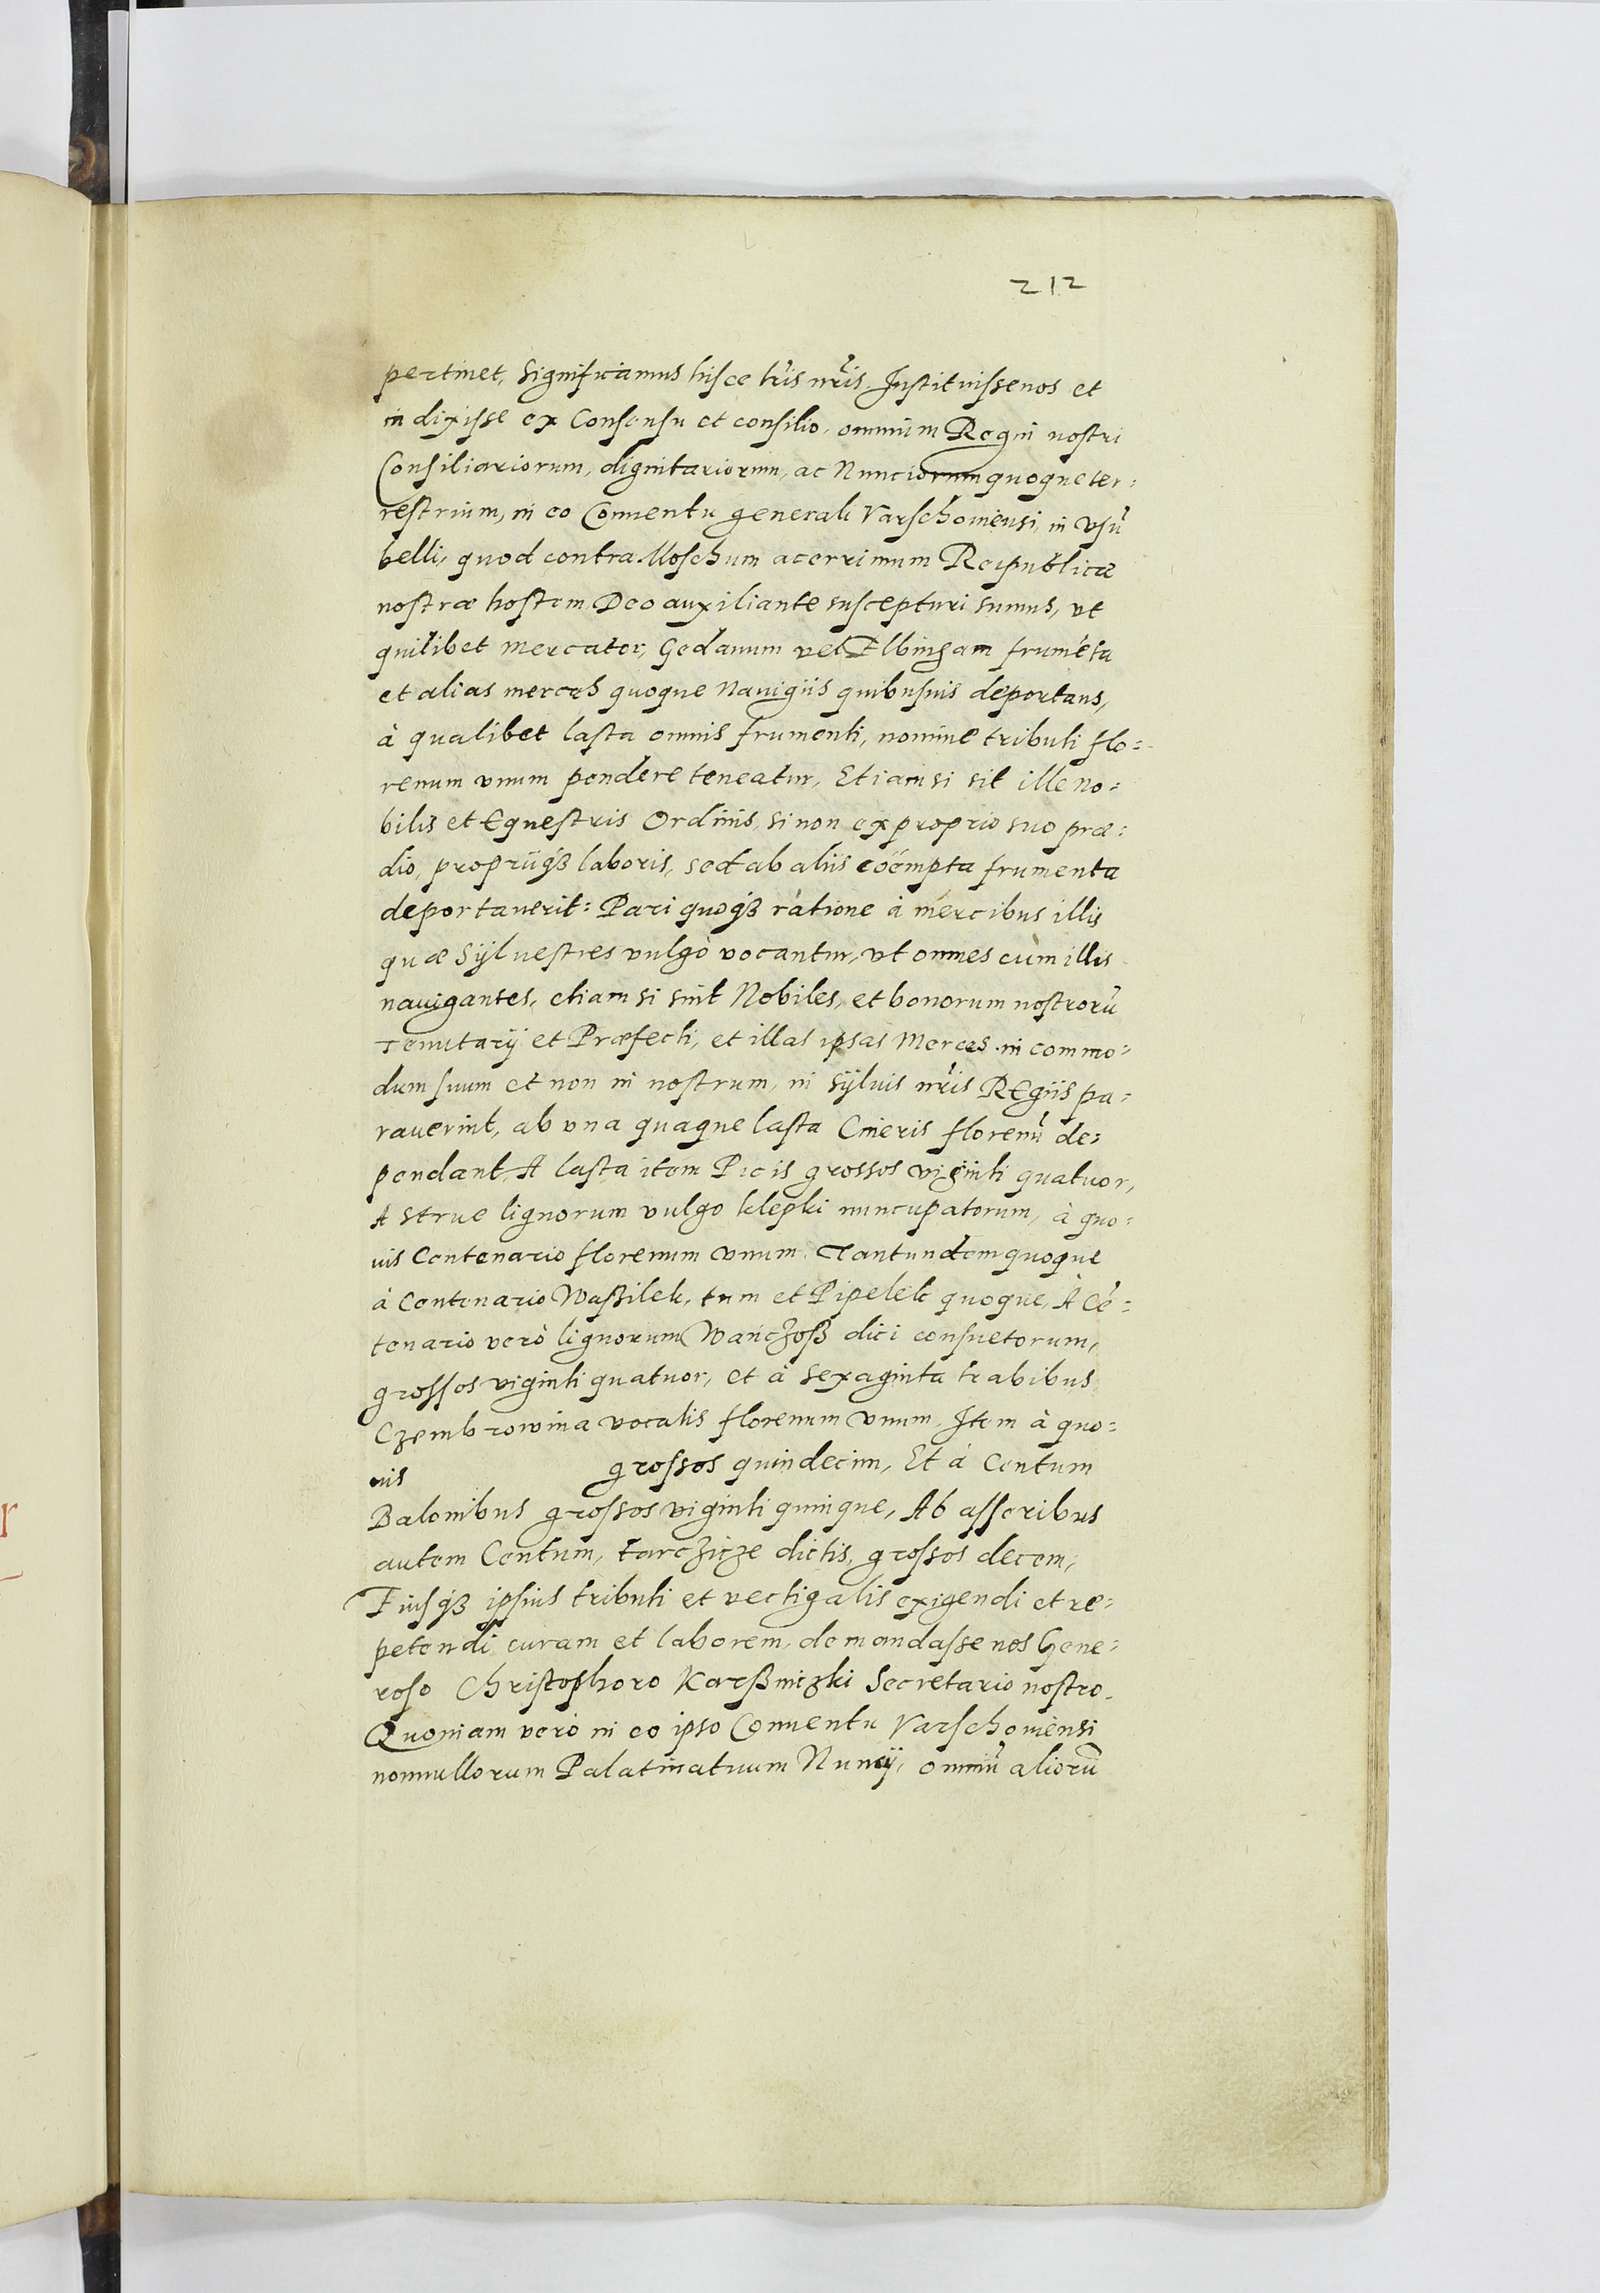 212
pertinet, Significamus hisce lris nris. Instituisse nos et
indixisse ex Consensu et consilio omnium Regni nostri
Consiliariorum, dignitariorum, ac Nunciorum quoque ter=
restrium, in eo Conuentu generali Varschouiensi, in vsũ
belli, quod contra Moschum acerrimum Reipublicæ
nostræ hostem Deo auxiliante suscepturi sumus, vt
quilibet mercator, Gedanum vel Elbingam frumẽta
et alias merces quoque Nauigiis quibusuis deportans,
à qualibet lasta omnis frumenti, nomine tributi flo=
renum vnum pendere teneatur, Etiam si sit ille no=
bilis et Equestris Ordinis, si non ex proprio suo præ=
dio, propriiqȝ laboris, sed ab aliis coëmpta frumenta
deportauerit: Pari quoqȝ ratione à mercibus illis
quæ Sÿluestres vulgò vocantur, vt omnes cùm illis
nauigantes, etiam si sint Nobiles, et bonorum nostrorũ
Tenutarÿ et Præfecti, et illas ipsas Merces in commo=
dum suum et non in nostrum, in sÿluis nris REgiis pa=
rauerint, ab vna quaque lasta Cineris florenũ de=
pendant, A lasta item Picis grossos viginti quatuor,
A strue lignorum vulgo klepki nuncupatorum, à quo=
uis Centenario florenum vnum. Tantundem quoque
à Centenario Waßilek, tum et Pipelek quoque, À Cẽ=
tenario verò lignorum Wańczoß dici consuetorum,
grossos viginti quatuor, et à sexaginta trabibus
Czembrowina vocatis florenum vnum. Item à quo=
uis grossos quindecim, Et à Centum
Balonibus grossos viginti quinque, Ab asseribus
autem Centum, tarczicze dictis, grossos decem,
Eiusqȝ ipsius tributi et vectigalis exigendi et re=
petendi curam et laborem, demandasse nos Gene=
roso Christophoro Karßnizki Secretario nostro.
Quoniam verò in eo ipso Conuentu Varschouiensi
nonnullorum Palatinatuum Nuncÿ, omniũ aliorũ